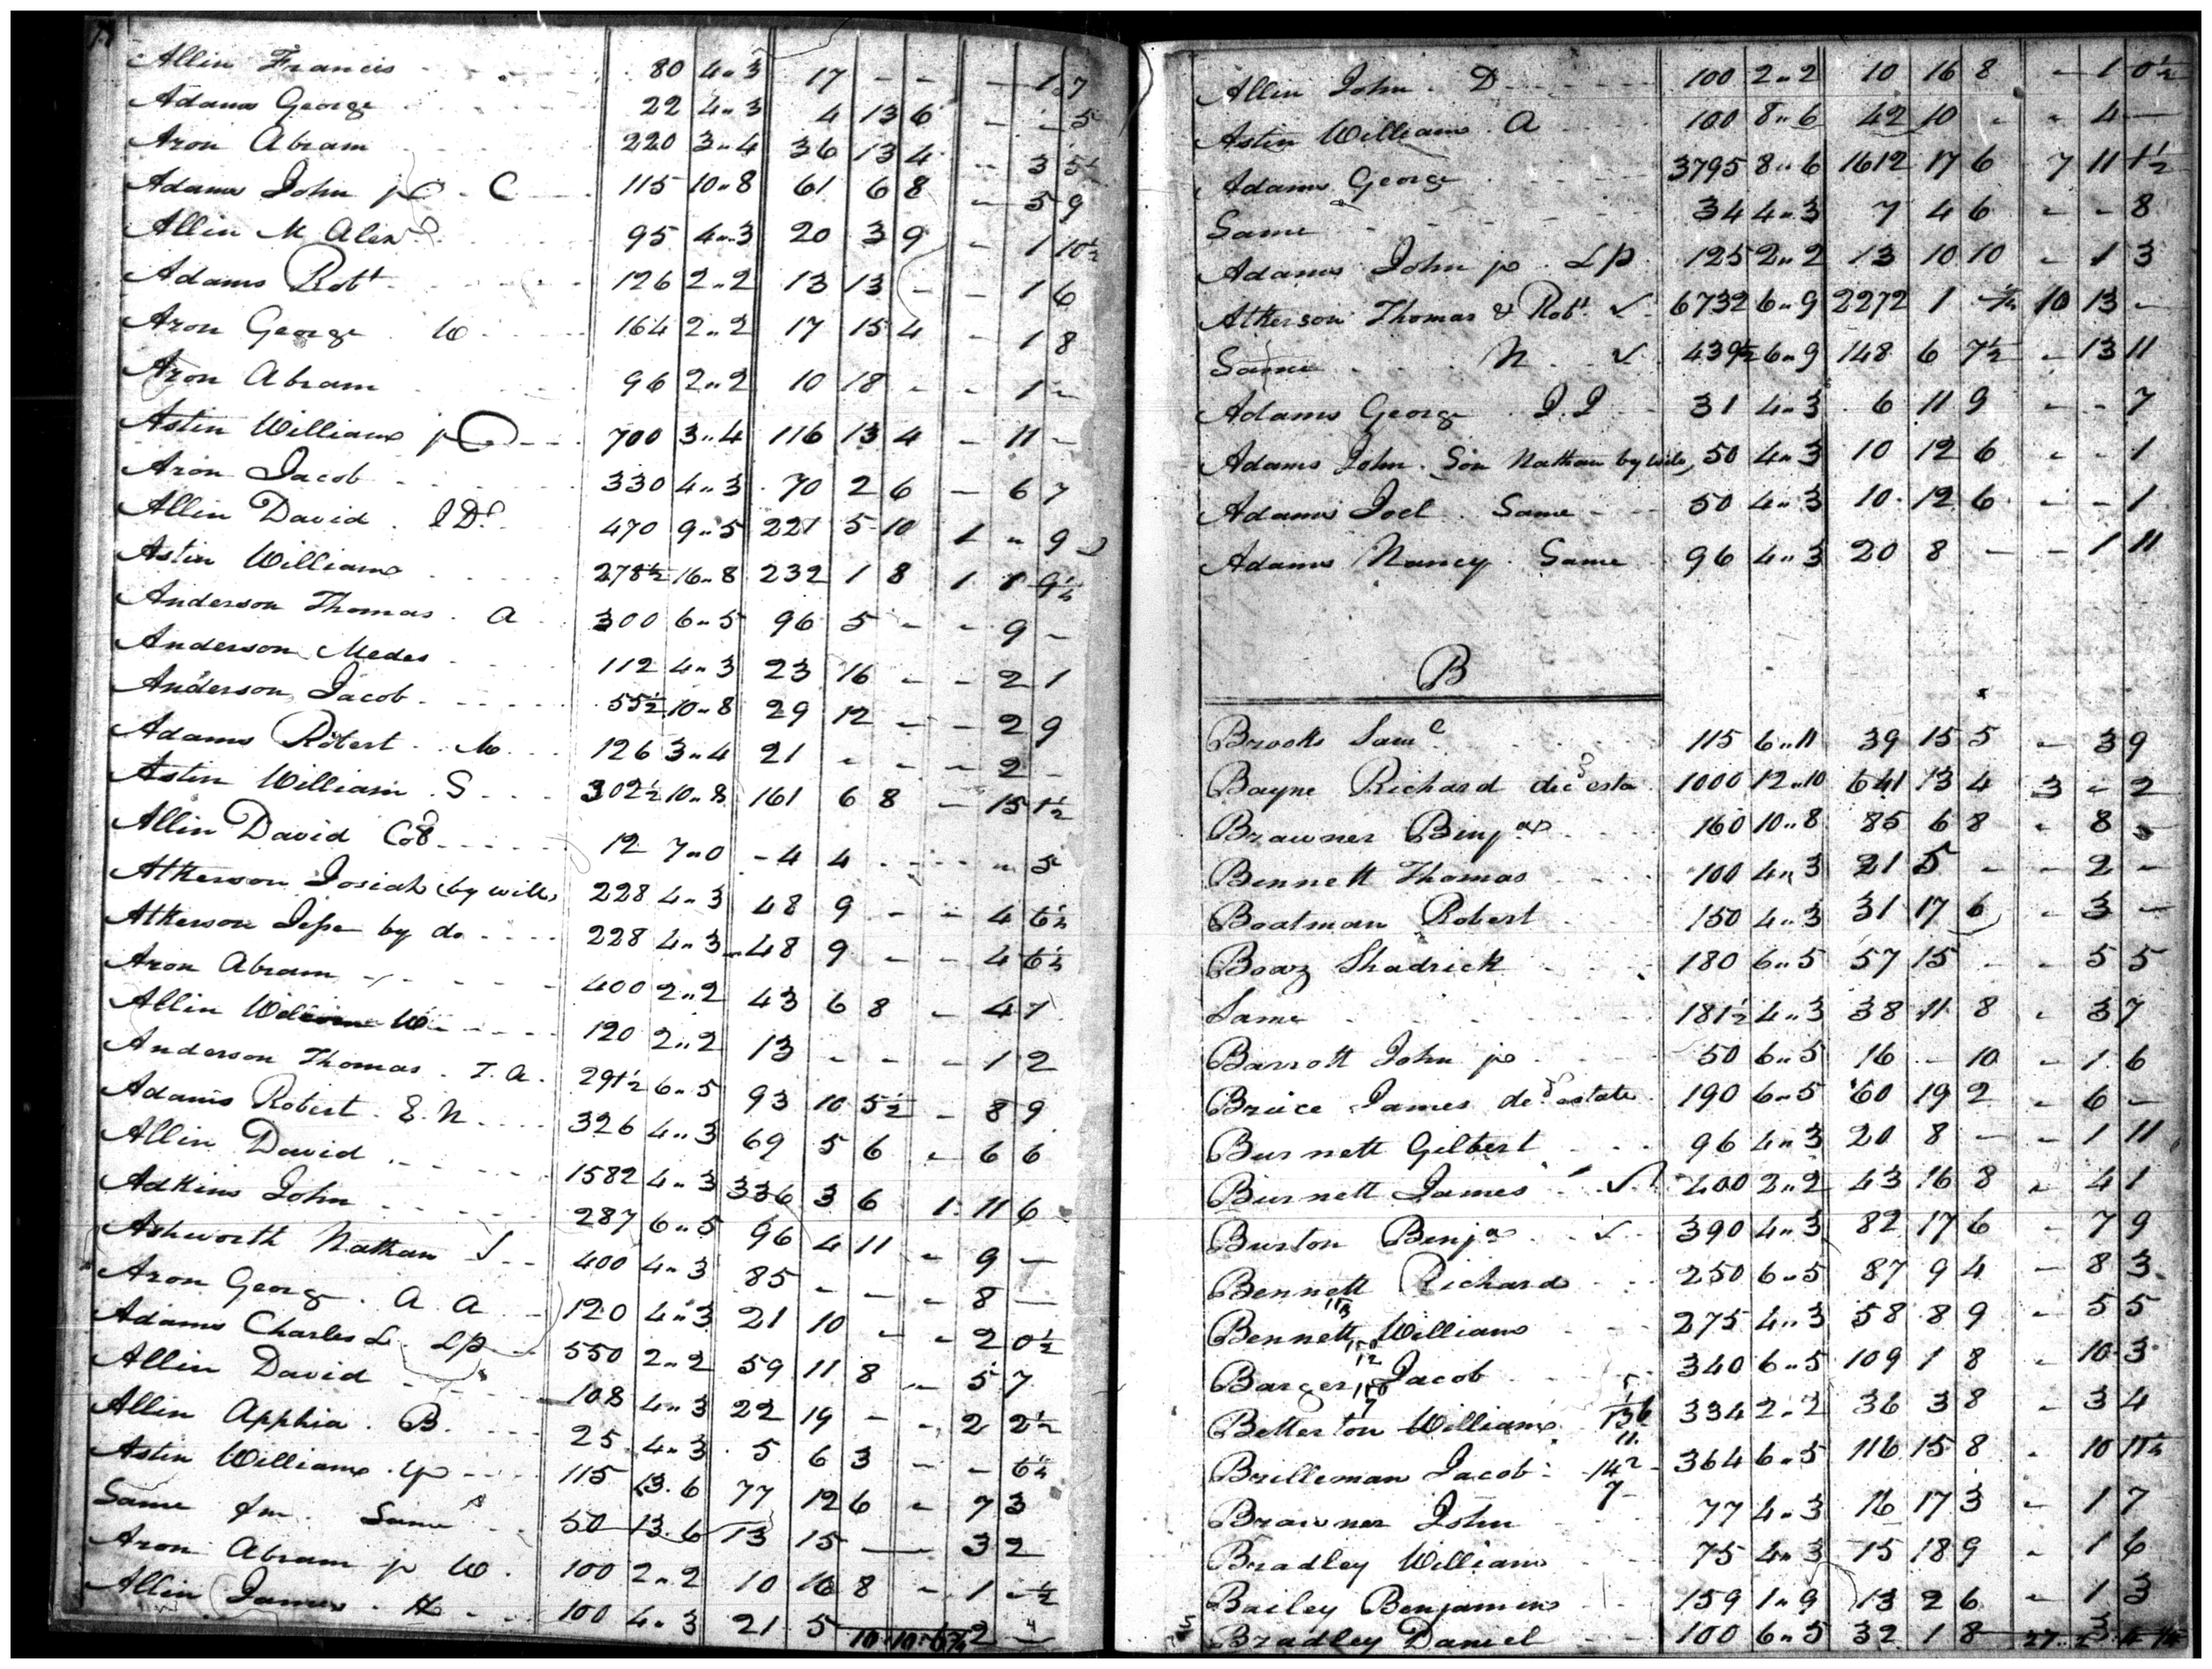 Allin Francis 80 4..3 17 - - - 1 7
Adams George 22 4..3 4 13 6 - - 5
Aron Abram 220 3..4 36 13 4 - 3 5½
Adams John C 115 10..8 61 6 8 - 5 9
Allin M Alexr 95 4..3 20 3 9 - 1 10½
Adams Robt 126 2..2 13 13 - - 1 6
Aron George W 164 2..2 17 15 4 - 1 8
Aron Abram 96 2..2 10 18 - - 1 -
Astin William 700 3..4 116 13 4 - 11 -
Aron Jacob 330 4..3 70 2 6 - 6 7
Allin David 470 9..5 221 5 10 1 " 9
Astin William 278½ 16..8 232 1 8 1 1 9½
Anderson Thomas A 300 6..5 96 5 - - 9 -
Anderson Medes 112 4..3 23 16 - - 2 1
Anderson Jacob 55½ 10..8 29 12 - - 2 9
Adams Robert 126 3..4 21 - - - 2 -
Astin William S 302½ 10..8 161 6 8 - 15 1½
Allin David 12 7..0 - 4 4 - - - 5
Atkerson Josiah (by will) 228 4..3 48 9 - - 4 6½
Atkerson Jesse by do 228 4..3 48 9 - - 4 6½
Aron Abram 400 2..2 43 6 8 - 4 1
Allin W 120 2..2 13 - - - 1 2
Anderson Thomas T. A. 291½ 6..5 93 10 5½ - 8 9
Adams Robert E. N 326 4..3 69 5 6 - 6 6
Allin David 1582 4..3 336 3 6 1 11 6
Adkins John 287 6..5 96 4 11 - 9 -
Ashworth Nathan S 400 4..3 85 - - - 8 -
Aron George A. A 120 4..3 21 10 - - 2 0½
Adams Charles L. LP 550 2..2 59 11 8 - 5 7
Allin David 108 4..3 22 19 - - 2 2½
Allin Apphia B. 25 4..3 5 6 3 - - 6½
Astin William 115 13.6 77 12 6 - 7 3
Same fm Same 50 13.6 13 15 - 3 2
Aron Abram jr W. 100 2..2 10 16 8 - 1 - ½
Allin James H 100 4..3 21 5 2 -
Allin John D 100 2..2 10 16 8 - 1 0½
Astin William A 100 8..6 42 10 - - 4 -
Adams George 3795 8..6 1612 17 6 7 11 1½
Same 34 4..3 7 4 6 - - 8
Adams John jr LP 125 2..2 13 10 10 - 1 3
Atkerson Thomas & Robt 6732 6..9 2272 1 10 13 -
Same N 439½ 6..9 148 6 7½ - 13 11
Adams George 31 4..3 6 11 9 - - 7
Adams John Son Nathan by will, 50 4..3 10 12 6 - - 1
Adams Joel Same 50 4..3 10 12 6 - - 1
Adams Nancy Same 96 4..3 20 8 - - 1 11
B
Brooks Saml 115 6..11 39 15 5 - 3 9
Bayne Richard decd esta 1000 12..10 641 13 4 3 - 2
Brawner Benja 160 10..8 85 6 8 - 8
Bennett Thomas 100 4..3 21 5 - - 2 -
Boatman Robert 150 4..3 31 17 6 - 3 -
Boaz Shadrick 180 6..5 57 15 - - 5 5
Same 181½ 4..3 38 11 8 - 3 7
Barrott John jr 50 6..5 16 - 10 - 1 6
Bruce James decd estate 190 6..5 60 19 2 - 6 -
Burnett Gilbert 96 4..3 20 8 - - 1 11
Burnett James 400 2..2 43 16 8 - 4 1
Burton Benja 390 4..3 82 17 6 - 7 9
Bennett Richard 250 6..5 87 9 4 - 8 3
Bennett William 275 4..3 58 8 9 - 5 5
Barger Jacob 340 6..5 109 1 8 - 10 3
Betterton William 334 2..2 36 3 8 - 3 4
Brilleman Jacob 364 6..5 116 15 8 - 10 11½
Brawner John 77 4..3 16 17 3 - 1 7
Bradley William 75 4..3 15 18 9 - 1 6
Bailey Benjamin 159 1..9 13 2 6 - 1 3
Bradley Daniel 100 6..5 32 1 8 3